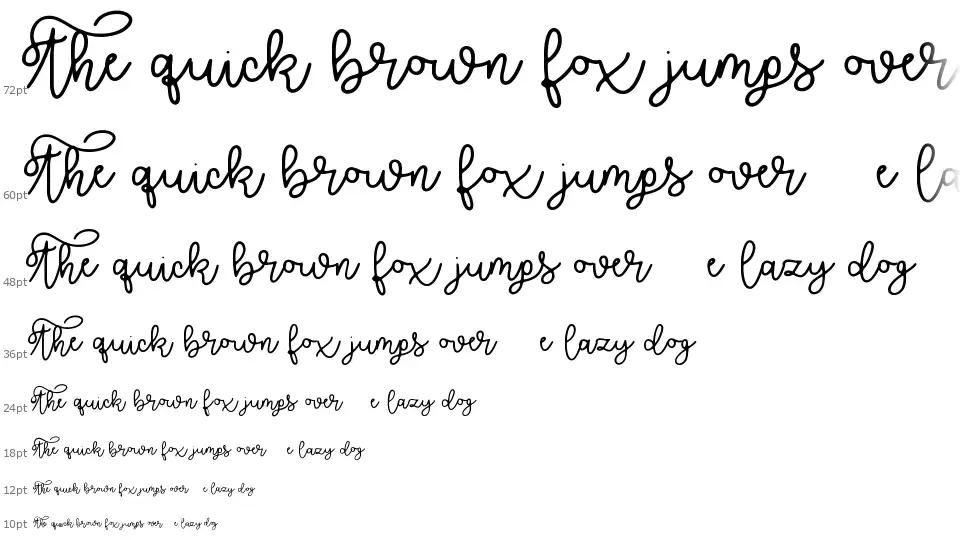 72pt The quick brown fox jumps over
60pt The quick brown fox jumps over e la
48pt The quick brown fox jumps over e lazy dog
36pt The quick brown fox jumps over e lazy dog
24pt The quick brown fox jumps over e lazy dog
18pt The quick brown fox jumps over e lazy dog
12pt The quick brown fox jumps over e lazy dog
10pt The quick brown fox jumps over e lazy dog